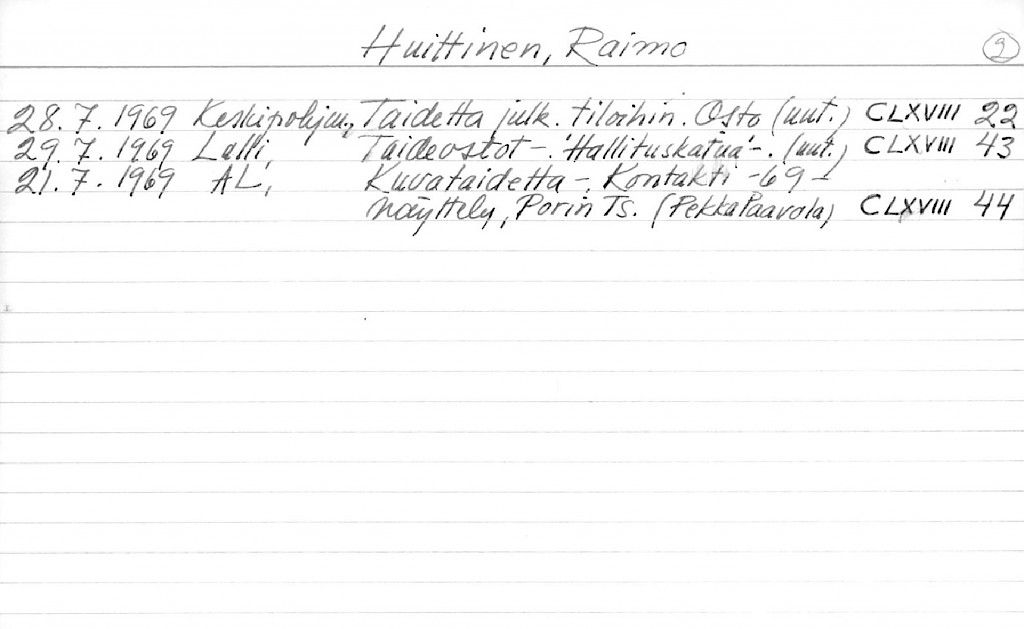 Huittinen, Raimo 9
28.7.1969 Keskipohjan., Taidetta julk. tiloihin. Osto (uut.) CLXVIII 22
29.7.1969 Lalli, Taideostot -. 'Hallituskatua' -. (uut.) CLXVIII 43
21.7.1969 AL, Kuvataidetta -. Kontakti -69 -
näyttely, Porin Ts. (Pekka Paavola) CLXVIII 44